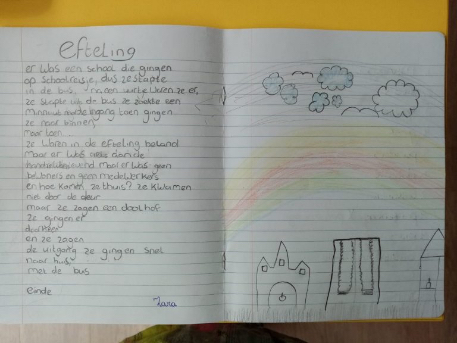 efteling
er was een school die gingen
op schoolreisje, dus ze stapte
in de bus, na een uurtje waren ze er,
ze stapte uit de bus ze zochte een
ingang toen gingen
ze naar binnen
maar toen
ze waren in de efteling beland
maar er was niks aan de
maar er was geen
bezoekers en geen medewerkers
en hoe komen ze thuis? ze kwamen
niet door de deur
maar ze zagen een doolhof
ze gingen er
doorheen
en ze zagen
de uitgang ze gingen snel
naar huis
met de bus
einde
Zara